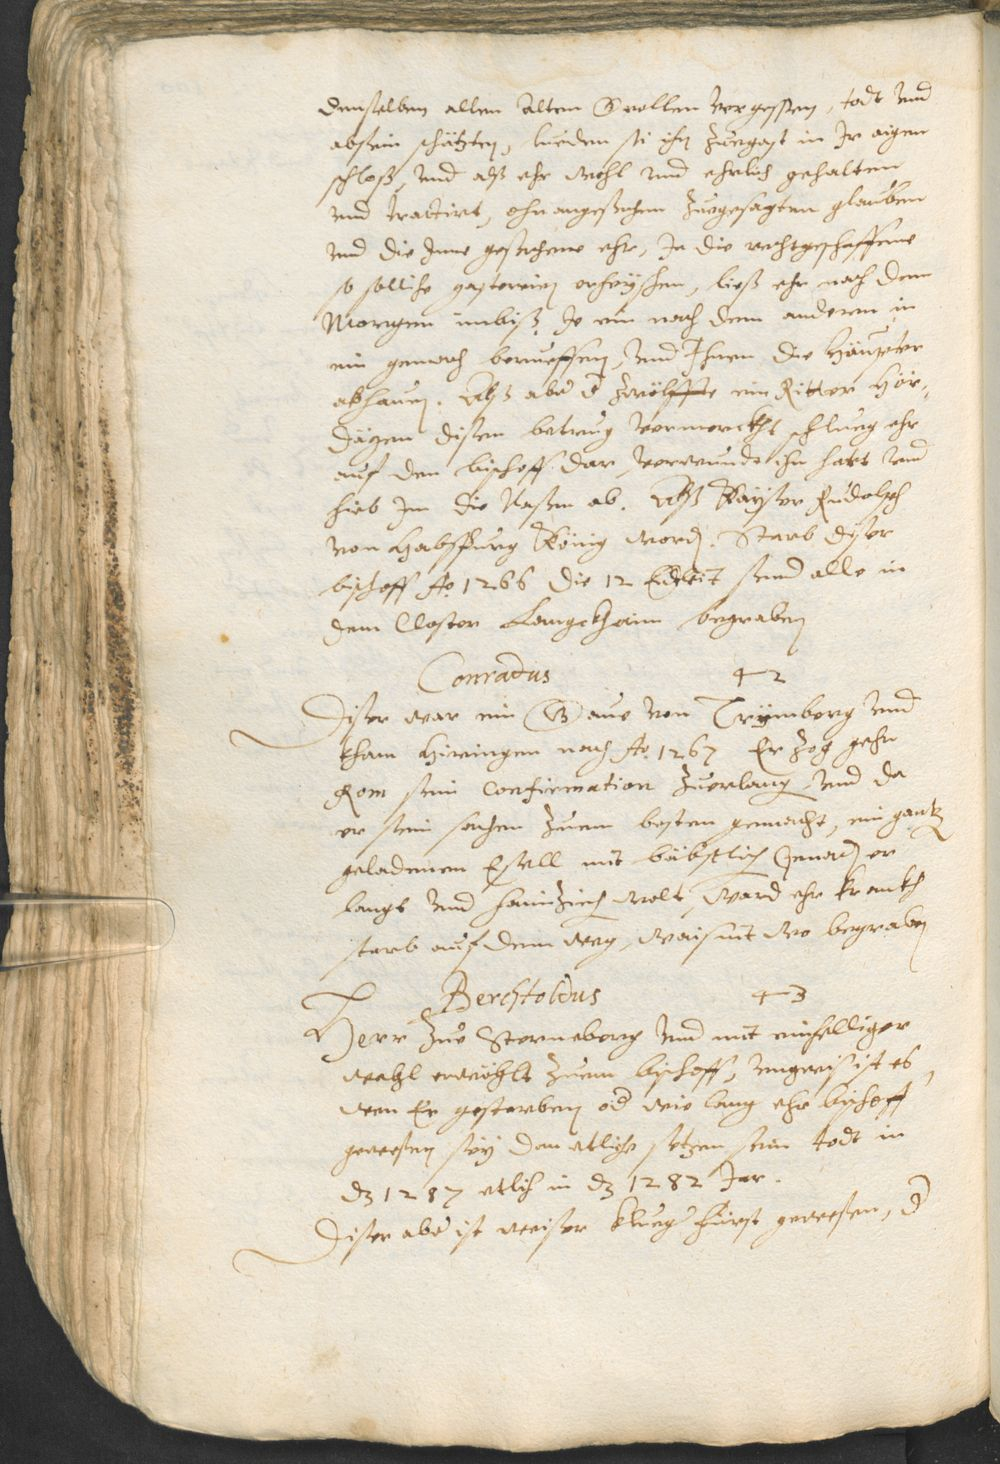 denselben allen alten Grollen vergessen, todt und
absein schätzten, lueden si ihn zuegast in Ir aigen
schloß, und alß ehr wohl und ehrlich gehalten
und tractirt, ohnangesehen zuegesagten glauben
und die Ime geschehene ehr, Ja die rechtgeschaffene
so solliche gastereien erheyschen, ließ ehr nach dem
Morgen imbiß, Je ein nach dem anderen in
ein gemach berueffen, und Ihnen die Häupter
abhauen. Alß aber der zwölffte ein Ritter
disen betrug vermerckht schlueg ehr
auf den bischoff dar, verwundt ihn hart und
hieb Im die Nasen ab. Alß Kayser Rudolph
von Habspurg König word. Starb diser
bischoff Ao 1266 die 12 send alle in
dem Closter Langckhaim begraben
Conradus 42
Diser war ein Grave von Trymberg und
kham hieringen nach Ao. 1267 Er zog gehn
Rom sein Confirmation zuerlang, und da
er sein sachen zuem besten gemacht, ein gantz
geladenen Esell mit bäbstlich Genad er
langt und haimziech wolt, ward ehr kranckh
starb auf dem weg, waisnit wo begraben
Berchtoldus 43
Herr zue Sterneberg und mit einhelliger
wahl erwöhlt zuem bischoff, ungewis ist es
wen Er gestorben oder wie lang ehr bischoff
gewesen sey dan etliche setzen sein todt in
dz 1287 etlich in dz 1282 Jar.
Diser aber ist weiser klueger fürst gewesen, der